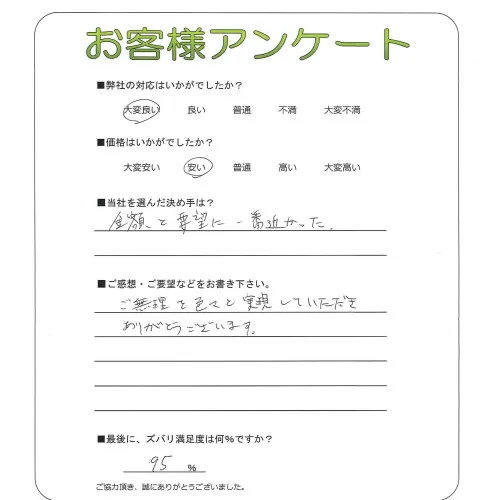 お客様アンケート
■弊社の対応はいかがでしたか？
大変良い 良い 普通 不満 大変不満
■価格はいかがでしたか？
大変安い 安い 普通 高い 大変高い
■当社を選んだ決め手は？
金額と要望に一番近かった。
■ご感想・ご要望などをお書き下さい。
ご無理を色々と実現していただき
ありがとうございます。
■最後に、ズバリ満足度は何％ですか？
95 ％
ご協力頂き、誠にありがとうございました。